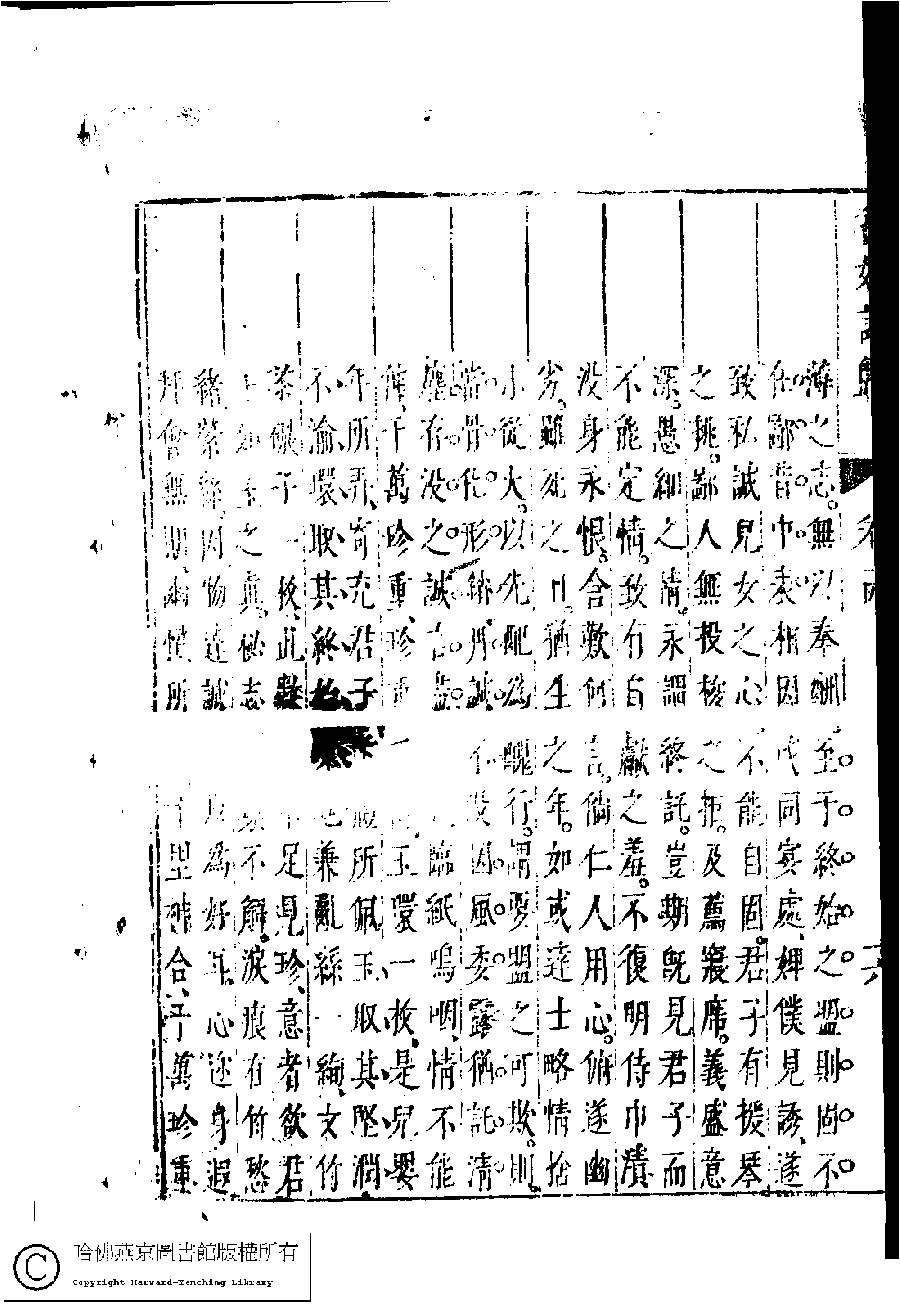 薄之志。無以奉酬至于終始之盟則固不
鄙昔中表相因或同宴處婢僕見誘遂
致私誠兒女之心不能自固。君子有援琴
之挑。鄙人無投梭之拒。及薦寢席。義盛意
深。愚細之情。永謂終託。豈期既見君子而
不能定情。致有自獻之羞。不復明侍巾幘
没身永恨。含歎何言。倘仁人用心。俯遂幽
劣。雖死之日。猶生之年。如或達士略情捨
小從大。以先配為醜行。謂要盟之可欺。則
當骨化形銷丹誠不没因風委露猶託清
塵存没之誠言盡臨紙嗚咽情不能
伸千萬珍重珍重玉環一枚是兒嬰
年所弄、寄充君子所佩玉取其堅潤
不渝環取其終始兼亂絲一絇文竹
茶碾子一枚、此數足見珍、意者欲君
如玉之真、志不解。淚痕有竹愁
緒縈絲因物達誠為好耳心迩身遐
拜會無期幽憤所千里神合千萬珍重
六
哈佛燕京圖書館版權所有
Copyright Harvard-Yenching Library